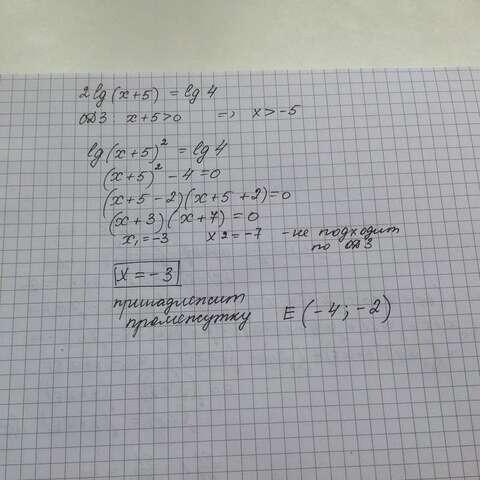 2lg(x+5) = lg 4
ОДЗ: x+5>0 => x>-5
lg(x+5)² = lg 4
(x+5)² - 4 = 0
(x+5-2)(x+5+2)=0
(x+3)(x+7) = 0
x₁=-3 x2=-7 - не подходит
по ОДЗ
x = -3
принадлежит
промежутку E (-4; -2)